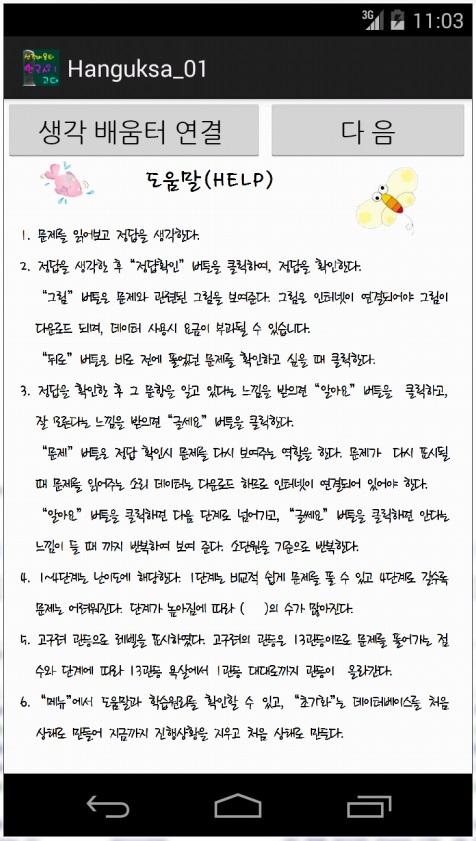 3G 11:03
Hanguksa_01
생각 배움터 연결 다 음
도움말(HELP)
1. 문제를 읽어보고 정답을 생각한다.
2. 정답을 생각한 후 “정답확인” 버튼을 클릭하여, 정답을 확인한다.
“그림” 버튼은 문제와 관련된 그림을 보여준다. 그림은 인터넷이 연결되어야 그림이
다운로드 되며, 데이터 사용시 요금이 부과될 수 있습니다.
“뒤로” 버튼은 바로 전에 풀었던 문제를 확인하고 싶을 때 클릭한다.
3. 정답을 확인한 후 그 문항을 알고 있다는 느낌을 받으면 “알아요” 버튼을 클릭하고,
잘 모른다는 느낌을 받으면 “글세요” 버튼을 클릭한다.
“문제” 버튼은 정답 확인시 문제를 다시 보여주는 역할을 한다. 문제가 다시 표시될
때 문제를 읽어주는 소리 데이터는 다운로드 하므로 인터넷이 연결되어 있어야 한다.
“알아요” 버튼을 클릭하면 다음 단계로 넘어가고, “글세요” 버튼을 클릭하면 안다는
느낌이 들 때 까지 반복하여 보여 준다. 소단원을 기준으로 반복한다.
4. 1~4단계는 난이도에 해당한다. 1단계는 비교적 쉽게 문제를 풀 수 있고 4단계로 갈수록
문제는 어려워진다. 단계가 높아짐에 따라 ( )의 수가 많아진다.
5. 고구려 관등으로 레벨을 표시하였다. 고구려의 관등은 13관등이므로 문제를 풀어가는 점
수와 단계에 따라 13관등 욕살에서 1관등 대대로까지 관등이 올라간다.
6. “메뉴”에서 도움말과 학습원리를 확인할 수 있고, “초기화”는 데이터베이스를 처음
상태로 만들어 지금까지 진행상황을 지우고 처음 상태로 만든다.